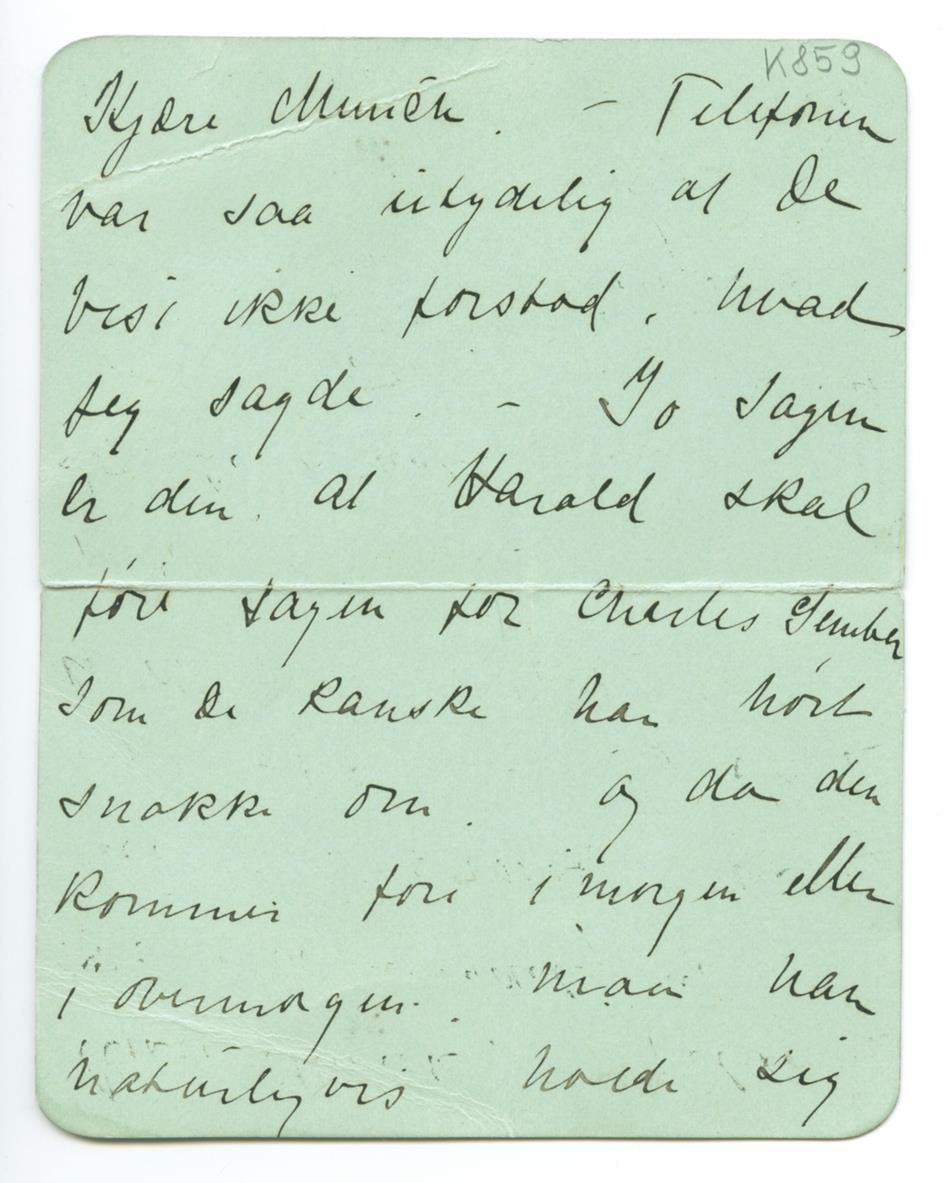 K859
Kjære Munch. – Telefonen
var saa utydelig at De
vist ikke forstod, hvad
jeg sagde. – Jo Sagen
er den, at Harald skal
føre Sagen for Charles
Som De kanske har hørt
snakke om. og da den
kommer fore i morgen eller
i overmorgen. maa han
naturligvis holde sig